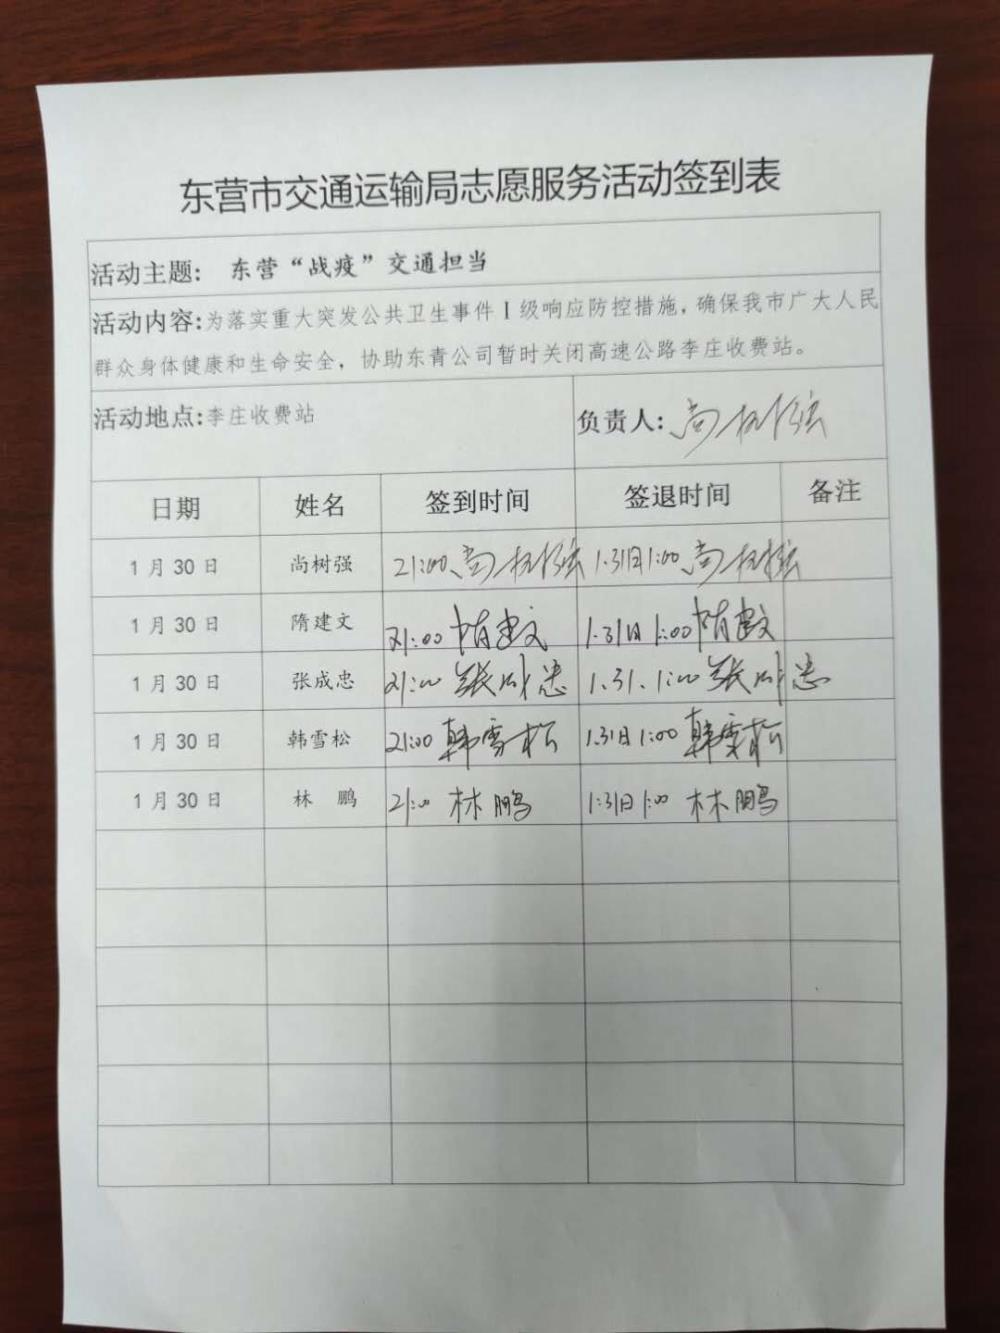 东营市交通运输局志愿服务活动签到表
活动主题: 东营“战疫”交通担当
活动内容:为落实重大突发公共卫生事件Ⅰ级响应防控措施,确保我市广大人民
群众身体健康和生命安全,协助东青公司暂时关闭高速公路李庄收费站。
活动地点:李庄收费站 负责人: 尚树强
日期 姓名 签到时间 签退时间 备注
1月30日 尚树强 21:00 尚树强 1.31日1:00 尚树强
1月30日 隋建文 21:00 隋建文 1.31日1:00 隋建文
1月30日 张成忠 21:00 张成忠 1.31. 1:00 张成忠
1月30日 韩雪松 21:00 韩雪松 1.31日1:00 韩雪松
1月30日 林 鹏 21:00 林鹏 1:31日1:00 林鹏